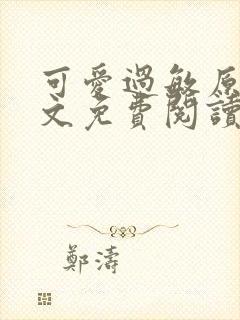 可愛過敏原
文免費閱讀
鄭濤